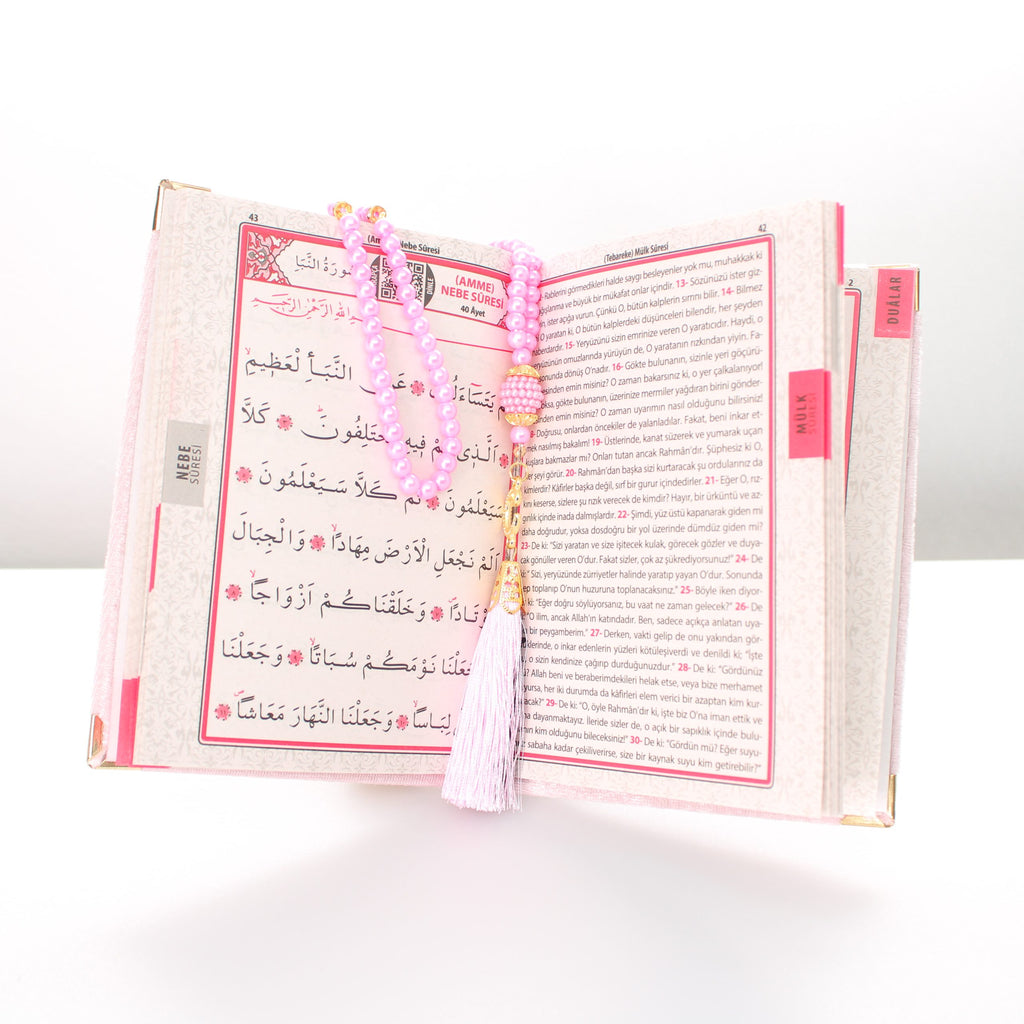 43
(Am Nebe Sûresi
سُورَةُ النَّبَأِ
DİNLE
(AMME)
NEBE SÛRESİ
40 Âyet
اللهِ الرَّحْمٰنِ الرَّحِيمِ
يَتَسَاءَلُونَ عَنِ النَّبَأِ الْعَظِيمِ
اَلَّذِي هُمْ فِيهِ مُخْتَلِفُونَ كَلَّا
سَيَعْلَمُونَ ثُمَّ كَلَّا سَيَعْلَمُونَ
اَلَمْ نَجْعَلِ الْاَرْضَ مِهَادًا وَالْجِبَالَ
وَخَلَقْنَاكُمْ اَزْوَاجًا
نَوْمَكُمْ سُبَاتًا وَجَعَلْنَا
لِبَاسًا وَجَعَلْنَا النَّهَارَ مَعَاشًا
NEBE
SÛRESİ
42
(Tebareke) Mülk Sûresi
Rablerini görmedikleri halde saygı besleyenler yok mu, muhakkak ki
bağışlanma ve büyük bir mükafat onlar içindir. 13- Sözünüzü ister giz-
ister açığa vurun. Çünkü O, bütün kalplerin sırrını bilir. 14- Bilmez
O yaratan ki, O bütün kalplerdeki düşünceleri bilendir, her şeyden
haberdardır. 15- Yeryüzünü sizin emrinize veren O yaratıcıdır. Haydi, o
yeryüzünün omuzlarında yürüyün de, O yaratanın rızkından yiyin. Fa-
sonunda dönüş O'nadır. 16- Gökte bulunanın, sizinle yeri göçürü-
sinden emin misiniz? O zaman bakarsınız ki, o yer çalkalanıyor!
gökte bulunanın, üzerinize mermiler yağdıran birini gönder-
emin misiniz? O zaman uyarımın nasıl olduğunu bilirsiniz!
Doğrusu, onlardan öncekiler de yalanladılar. Fakat, beni inkar et-
mek nasılmış bakalım! 19- Üstlerinde, kanat süzerek ve yumarak uçan
kuşlara bakmazlar mı? Onları tutan ancak Rahmân'dır. Şüphesiz ki O,
her şeyi görür. 20- Rahmân'dan başka sizi kurtaracak şu ordularınız da
kimlerdir? Kâfirler başka değil, sırf bir gurur içindedirler. 21- Eğer O, rız-
kını keserse, sizlere şu rızık verecek de kimdir? Hayır, bir ürküntü ve az-
gınlık içinde inada dalmışlardır. 22- Şimdi, yüz üstü kapanarak giden mi
daha doğrudur, yoksa dosdoğru bir yol üzerinde dümdüz giden mi?
23- De ki: "Sizi yaratan ve size işitecek kulak, görecek gözler ve duya-
cak gönüller veren O'dur. Fakat sizler, çok az şükrediyorsunuz!" 24- De
ki: " Sizi, yeryüzünde zürriyetler halinde yaratıp yayan O'dur. Sonunda
toplanıp O'nun huzuruna toplanacaksınız." 25- Böyle iken diyor-
ki: "Eğer doğru söylüyorsanız, bu vaat ne zaman gelecek?" 26- De
"O ilim, ancak Allah'ın katındadır. Ben, sadece açıkça anlatan uya-
bir peygamberim." 27- Derken, vakti gelip de onu yakından gör-
lerinde, o inkar edenlerin yüzleri kötüleşiverdi ve denildi ki; "İşte
o sizin kendinize çağırıp durduğunuzdur." 28- De ki: "Gördünüz
Allah beni ve beraberimdekileri helak etse, veya bize merhamet
her iki durumda da kâfirleri elem verici bir azaptan kim kur-
acak?" 29- De ki: "O, öyle Rahmân'dır ki, işte biz O'na iman ettik ve
dayanmaktayız. İleride sizler de, o açık bir sapıklık içinde bulu-
kim olduğunu bileceksiniz!" 30- De ki: "Gördün mü? Eğer suyu-
sabaha kadar çekiliverirse, size bir kaynak suyu kim getirebilir?"
MÜLK
SÛRESİ
2
DUÂLAR